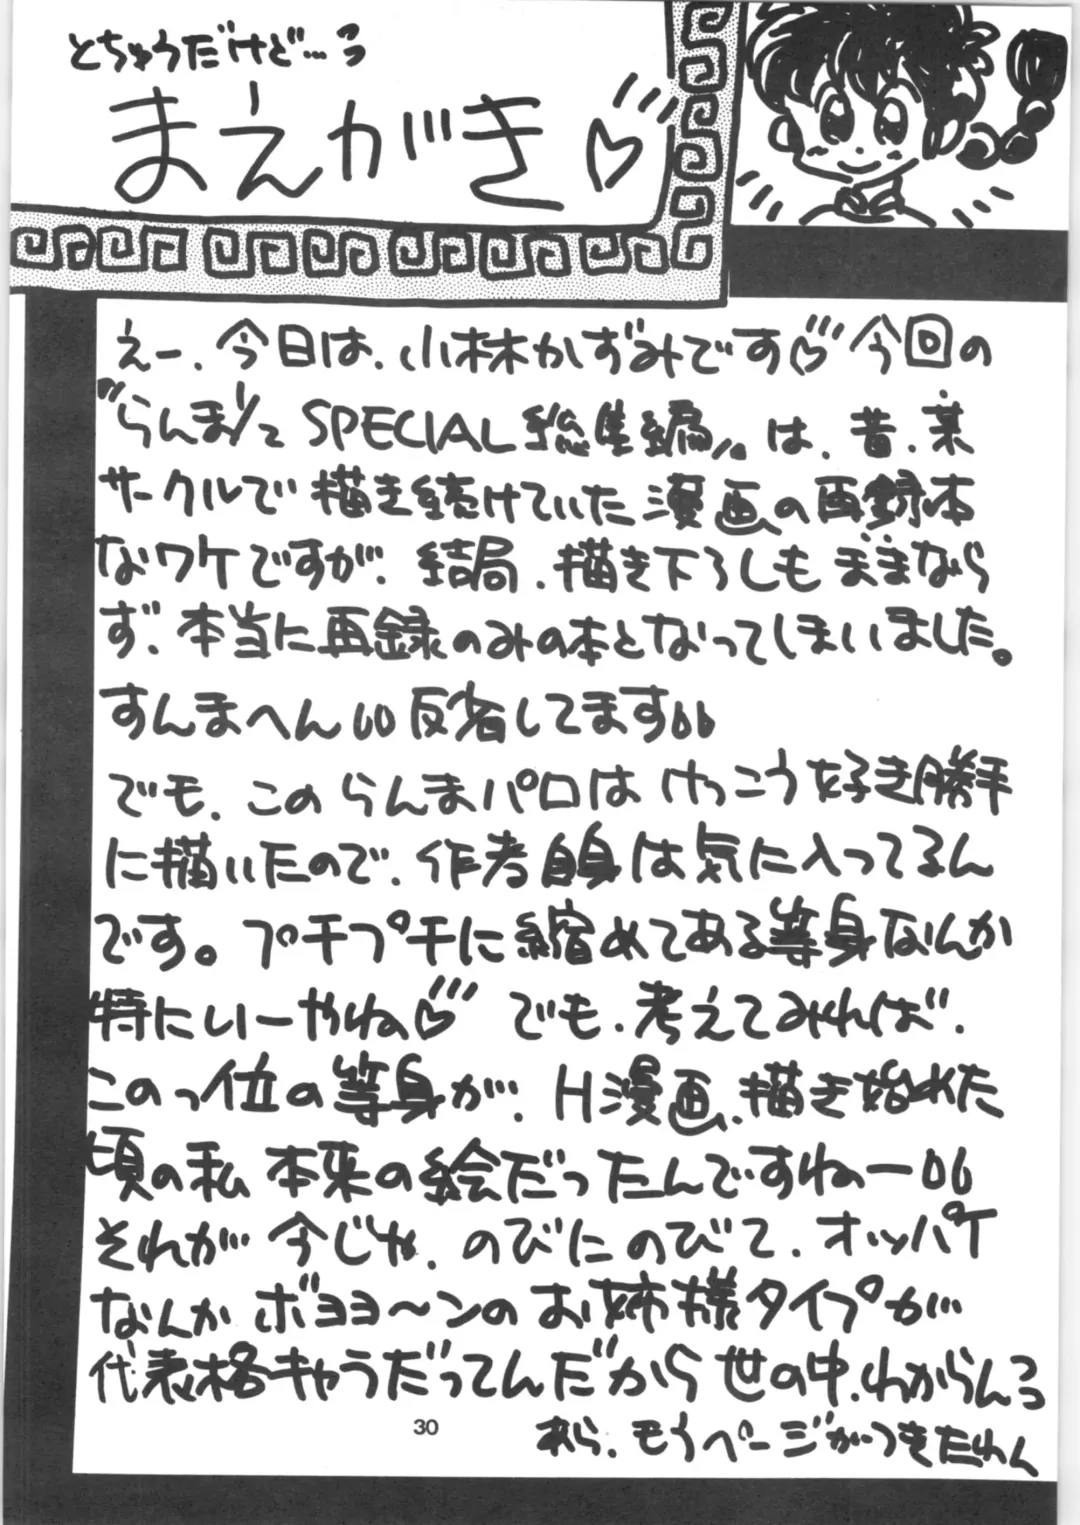 とちゅうだけど…っ
まえがき♡
えー、今日は、小林かずみです♡今回の
"らんま1/2 SPECIAL 総集編"は、昔、某
サークルで描き続けていた漫画の再録本
なワケですが、結局、描き下ろしもままなら
ず、本当に再録のみの本となってしまいました。
すんまへん 反省してます
でも、このらんまパロはけっこう好き勝手
に描いたので、作者自身は気に入ってるん
です。プチプチに縮めてある等身なんか
特にいーやね♡でも、考えてみれば、
このっ位の等身が、H漫画、描き始めた
頃の私本来の絵だったんですねー
それが今じゃ、のびにのびて、オッパイ
なんかボヨヨ〜ンのお姉様タイプが
代表格キャラだってんだから世の中、わからんっ
30
あら、もうページがつきたわん